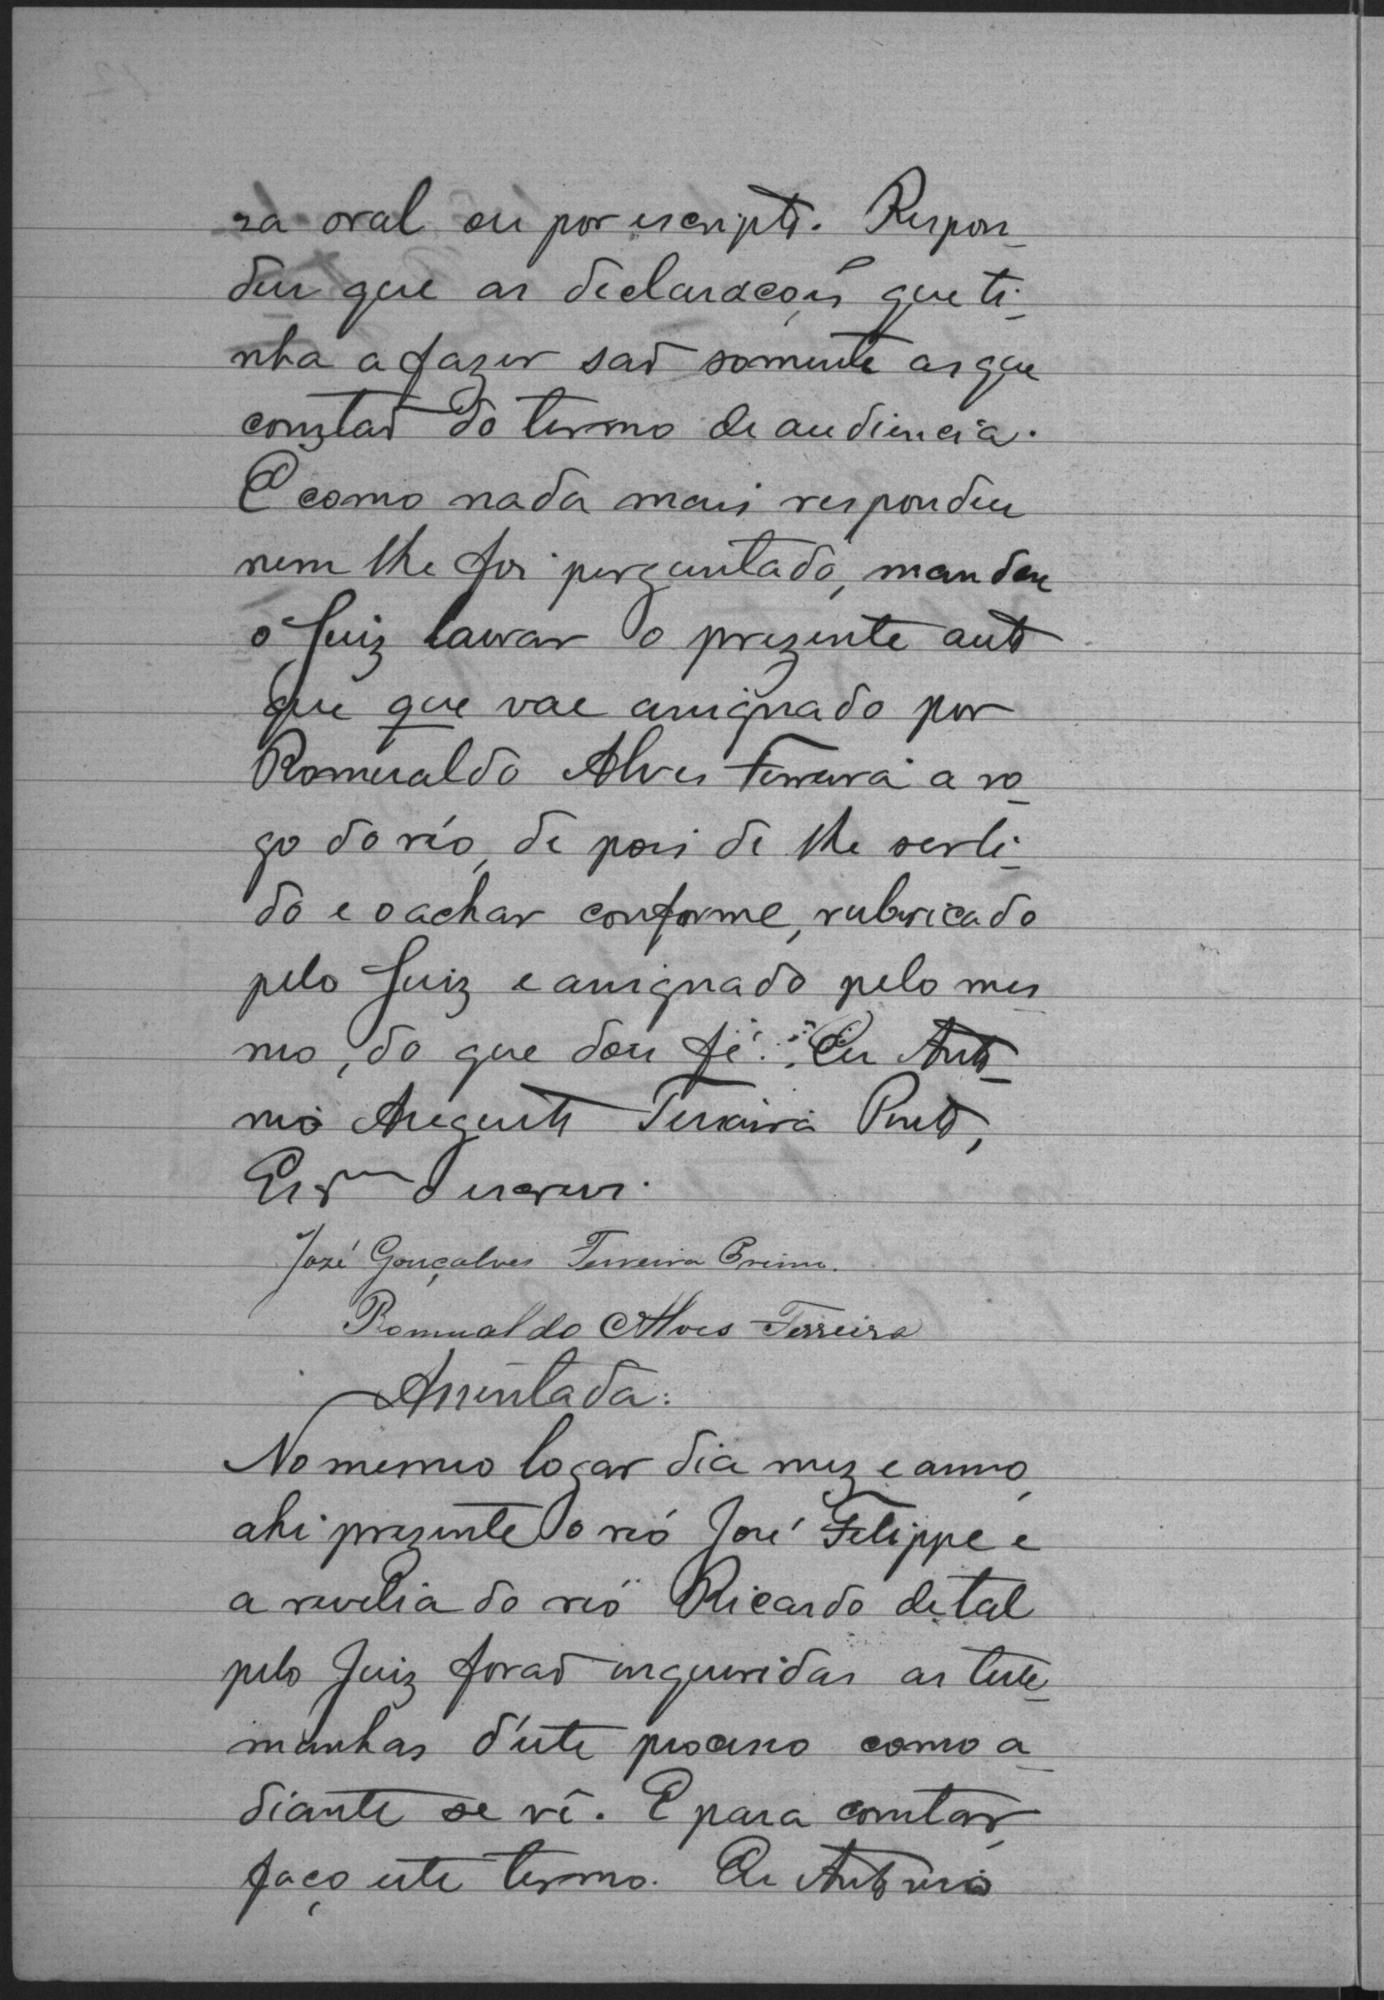 sa oral ou por escripto. Respon-
deu que as declarações que ti-
nha a fazer saõ somente as que
constaõ do termo de audiencia.
E como nada mais respondeu
nem lhe foi perguntado, mandou
o Juiz lavrar o prezente auto
que que vae assignado por
Romualdo Alves Ferreira a ro-
go do réo, de pois de lhe ser li-
do e o achar conforme, rubricado
pelo Juiz e assignado pelo mes-
mo, do que dou fé. Eu Anto-
nio Augusto Teixeira Pinto,
Escr.m o escrevi.
José Gonçalves Ferreira Primo.
Romualdo Alves Ferreira
Assentada:
No mesmo logar dia mez e anno,
ahi prezente o reó José Filippe e
a revelia do reó Ricardo de tal
pelo Juiz foraõ inqueridas as teste-
munhas d'este processo como a-
diante se vê. E para constar,
faço este termo. Eu Antonio